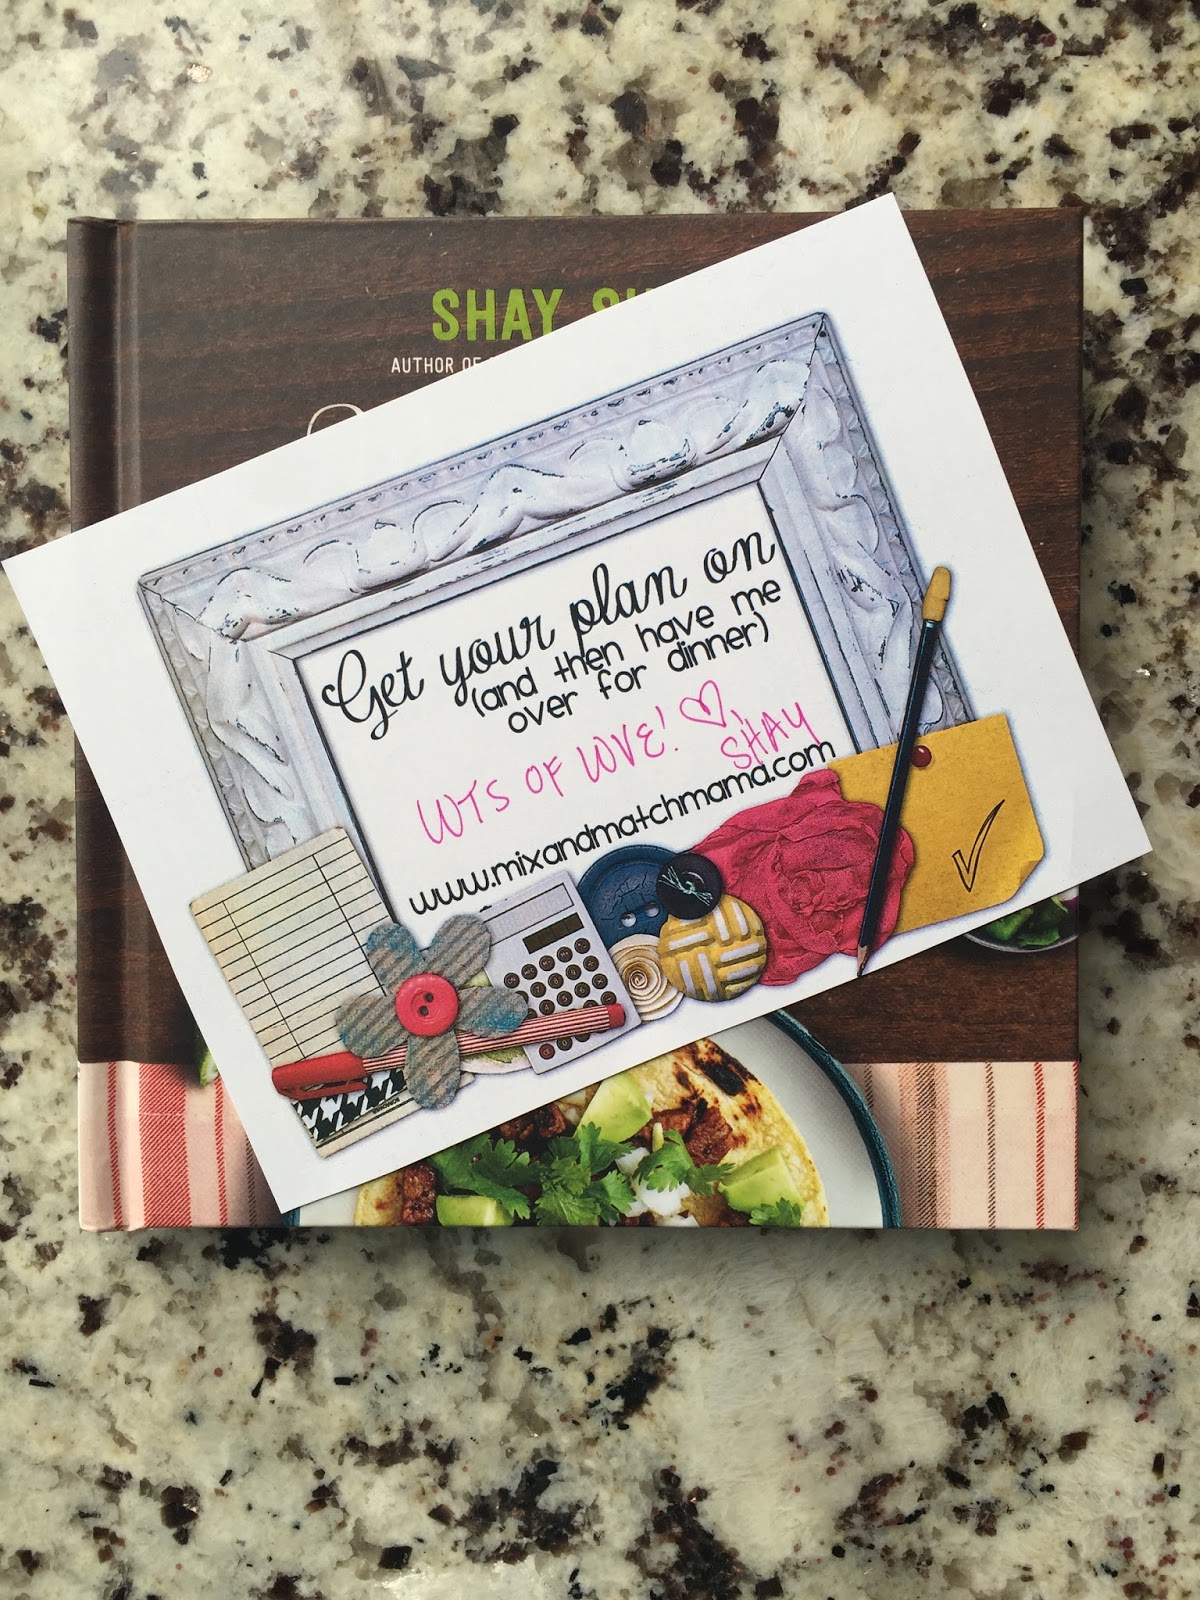 SHAY
AUTHOR OF
Get your plan on
(and then have me
over for dinner)
LOTS OF LOVE! ♡,
SHAY
www.mixandmatchmama.com